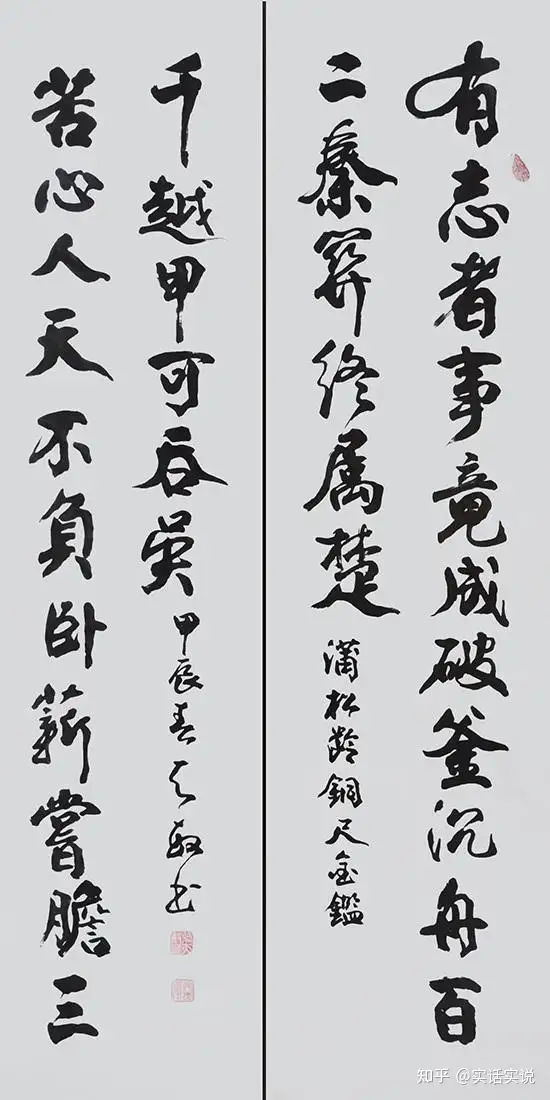 有志者事竟成破釜沉舟百
二秦關終属楚
蒲松龄銅尺金鑑
苦心人天不負卧薪嘗膽三
千越甲可吞吴
甲辰春书
知乎 @实话实说